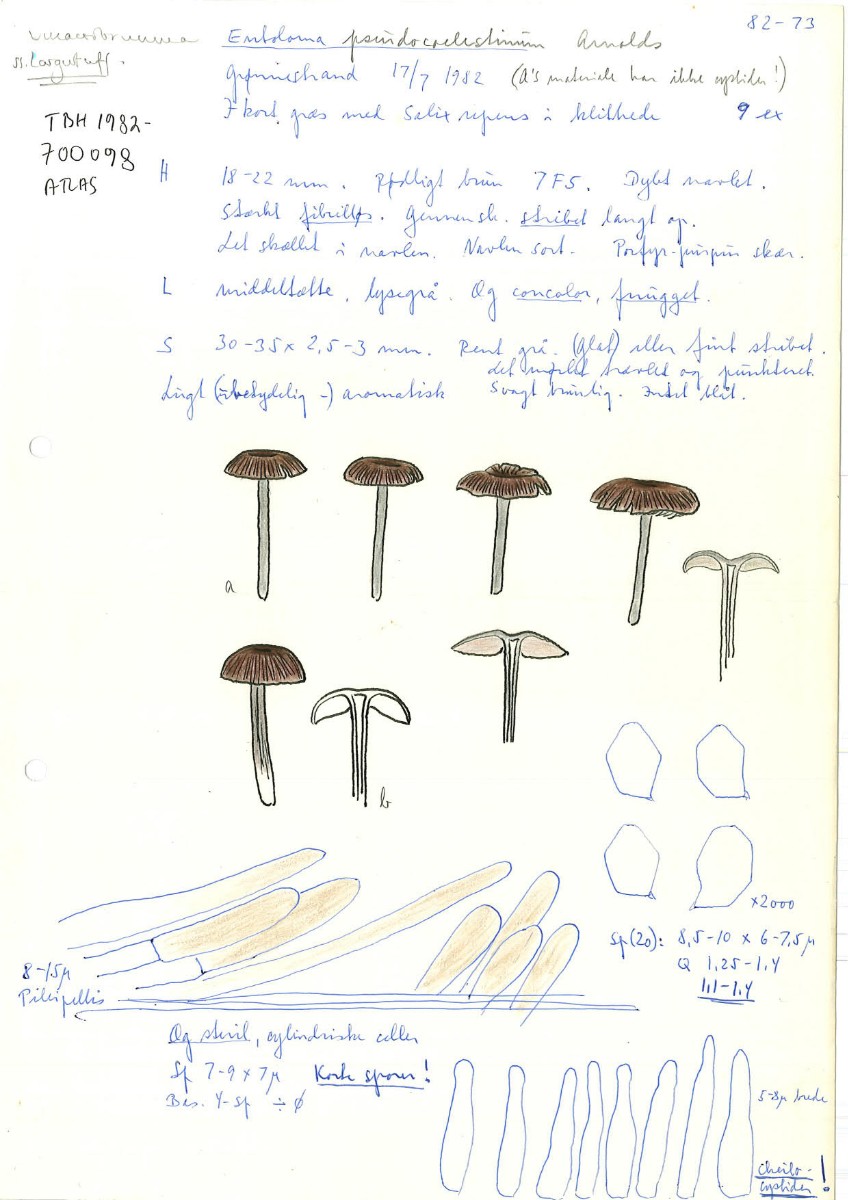 82-73
Entoloma pseudocoelestinum Arnolds
ss. Largentuff.
Grønnestrand 17/7 1982 (A's materiale har ikke cystider!)
TBH 1982-
700098
ATLAS
I kort græs med Salix repens i klithede 9 ex
H 18-22 mm. Rødligt brun 7F5. Dybt navlet.
Stærkt fibrilløs. Gennemsk. stribet langt op.
Let skællet i navlen. Navlen sort. Porfyr-purpur skær.
L middeltætte, lysegrå. Æg concolor, fnugget.
S 30-35 x 2,5-3 mm. Rent grå. (Glat) eller fint stribet.
let mørkt trævlet og punkteret.
Lugt (ubetydelig -) aromatisk Svagt brunlig. Intet blåt.
a
b
x2000
Sp(20): 8,5-10 x 6-7,5µ
Q 1,25-1,4
1,1-1,4
8-15µ
Pileipellis
Æg steril, cylindriske celler
Sp 7-9 x 7µ Korte sporer!
Bas. 4-sp ÷ ø
5-8µ brede
cheilo-
cystider!